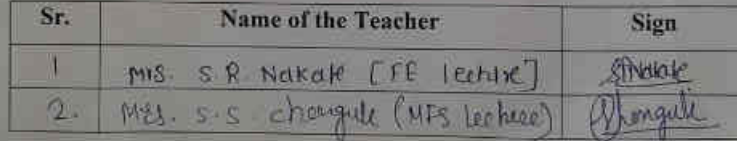 Sr. Name of the Teacher Sign
1 Mrs. S. R. Nakate [FE lecture] SNakate
2. Mrs. S.S chougule (MFS Lecture) Chougule